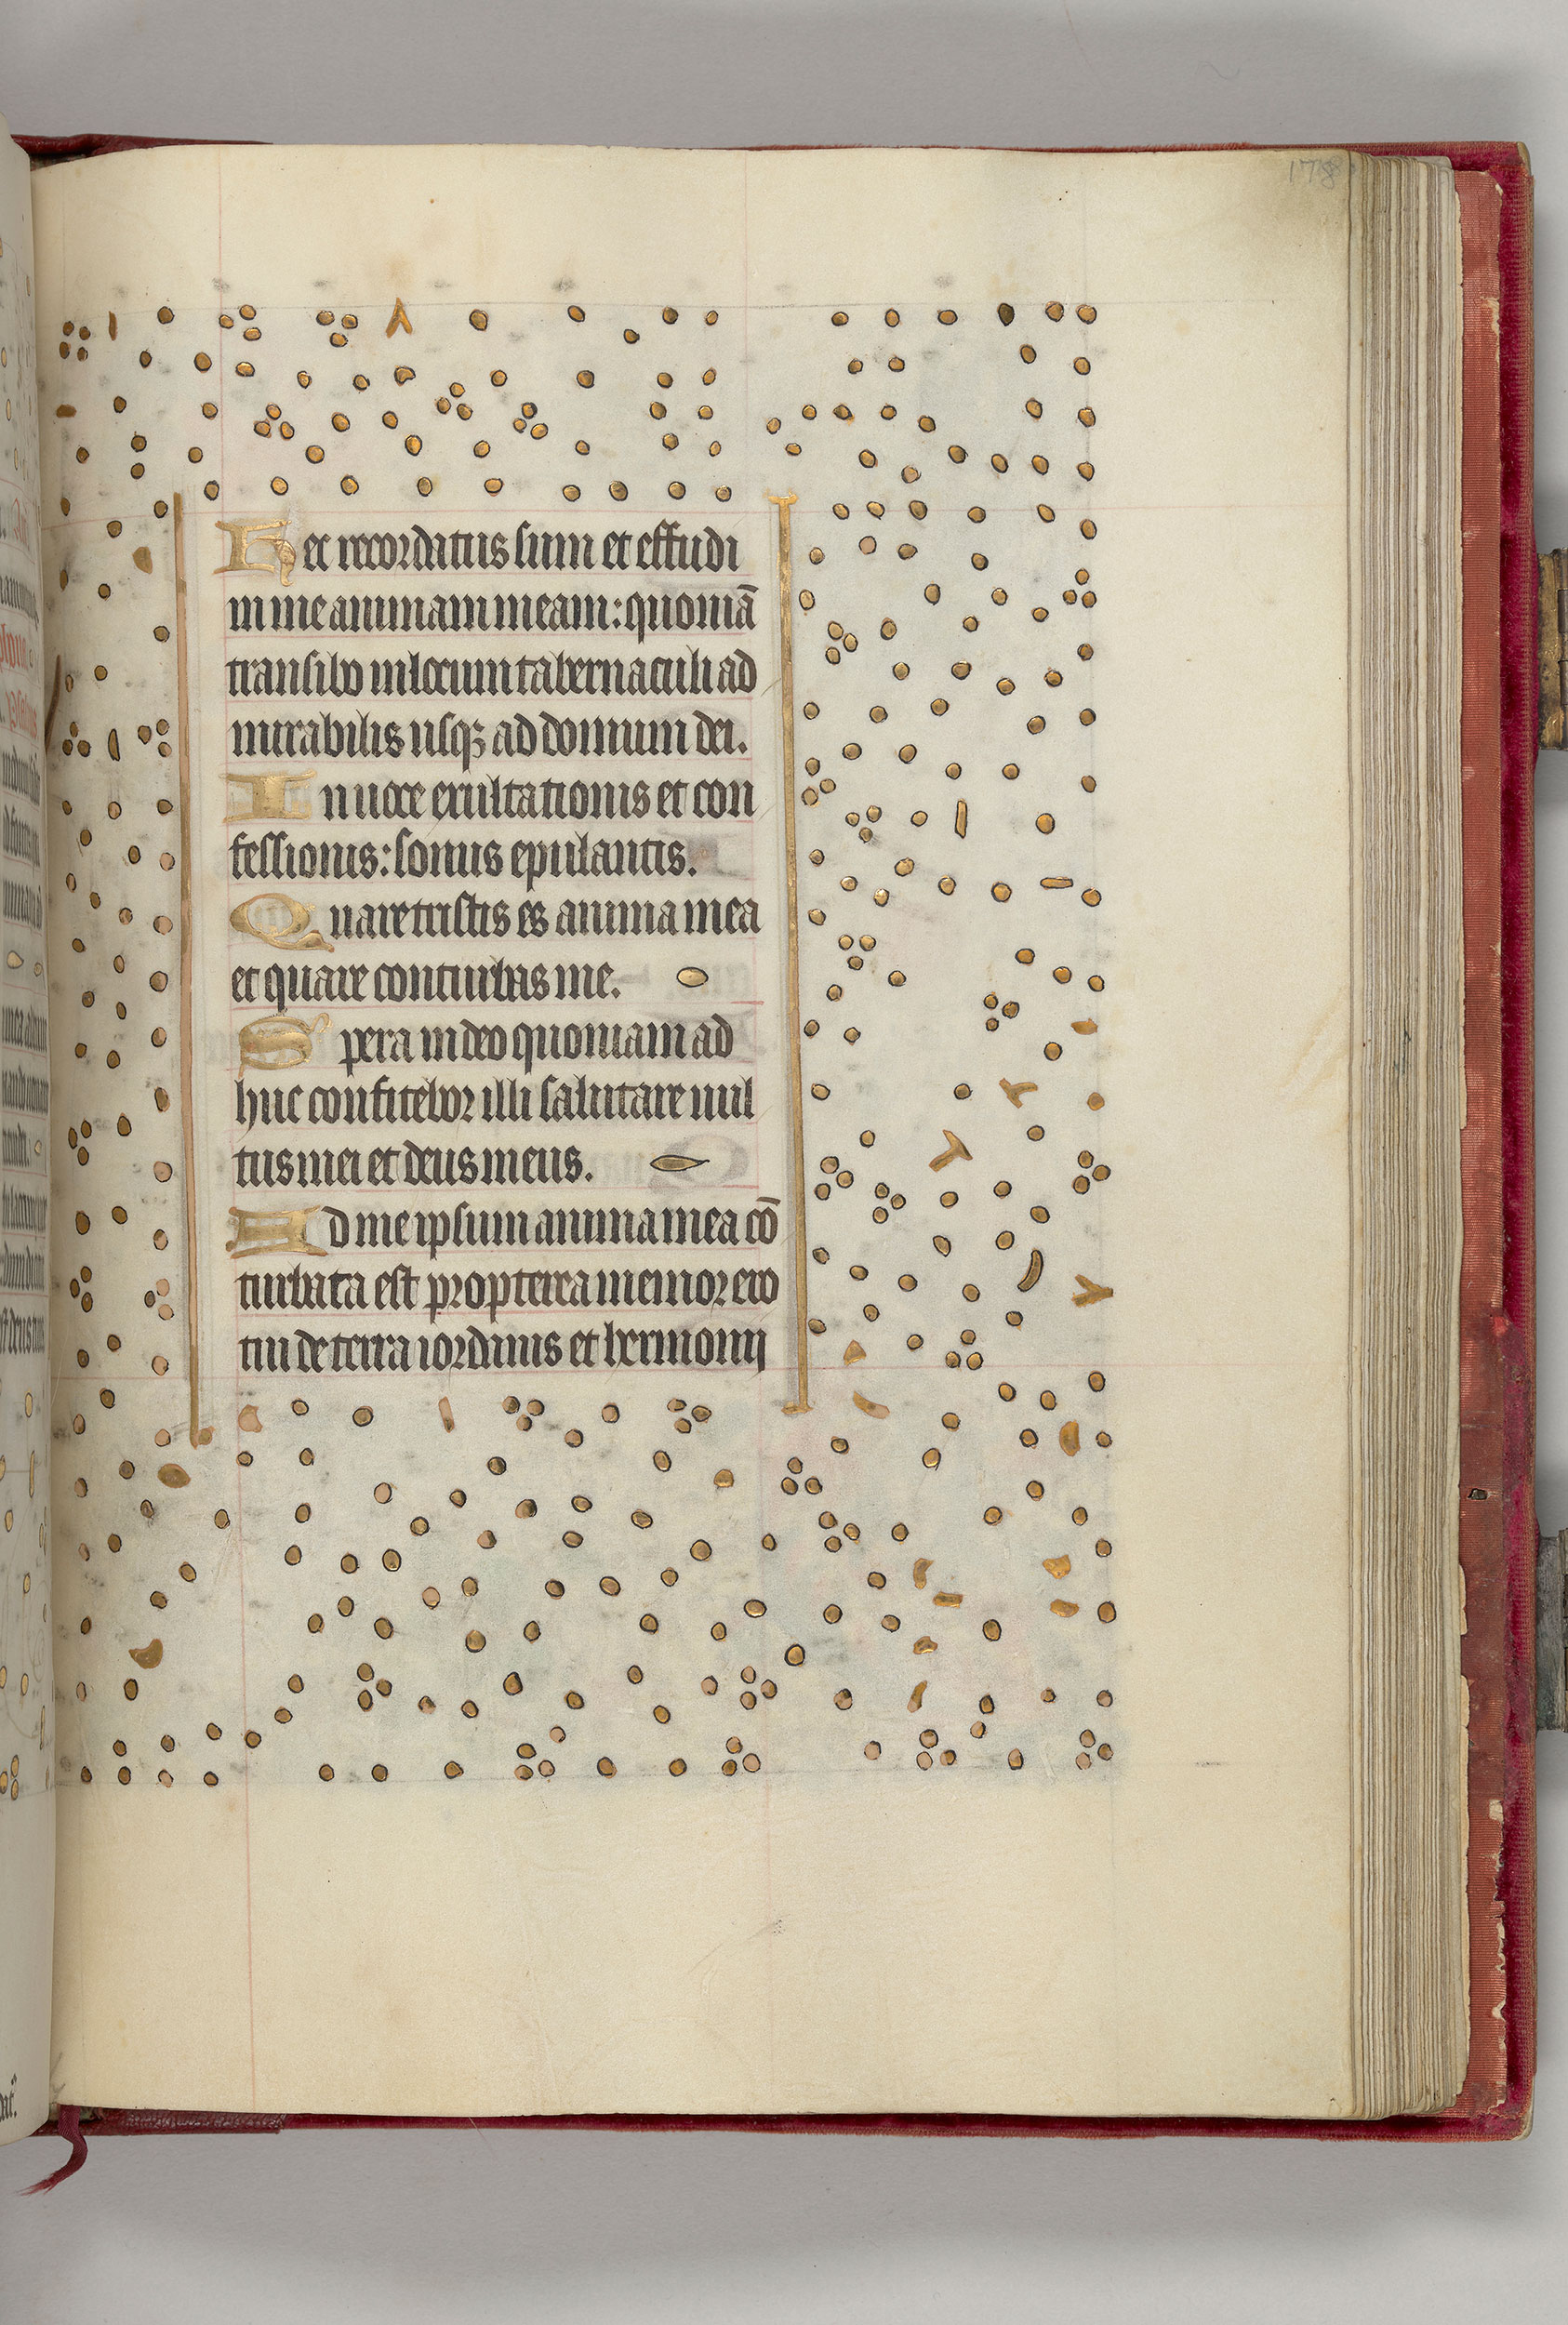 178
Hec recordatus sum et effudi
in me animam meam: quoniā
transibo in locum tabernaculi ad
mirabilis usqꝫ ad domum dei.
In uoce exultationis et con
fessionis: sonus epulantis.
Quare tristis es anima mea
et quare conturbas me.
Spera in deo quoniam ad
huc confitebor illi salutare uul
tus mei et deus meus.
Ad me ipsum anima mea cō
turbata est propterea memor ero
tui de terra iordanis et hermonij